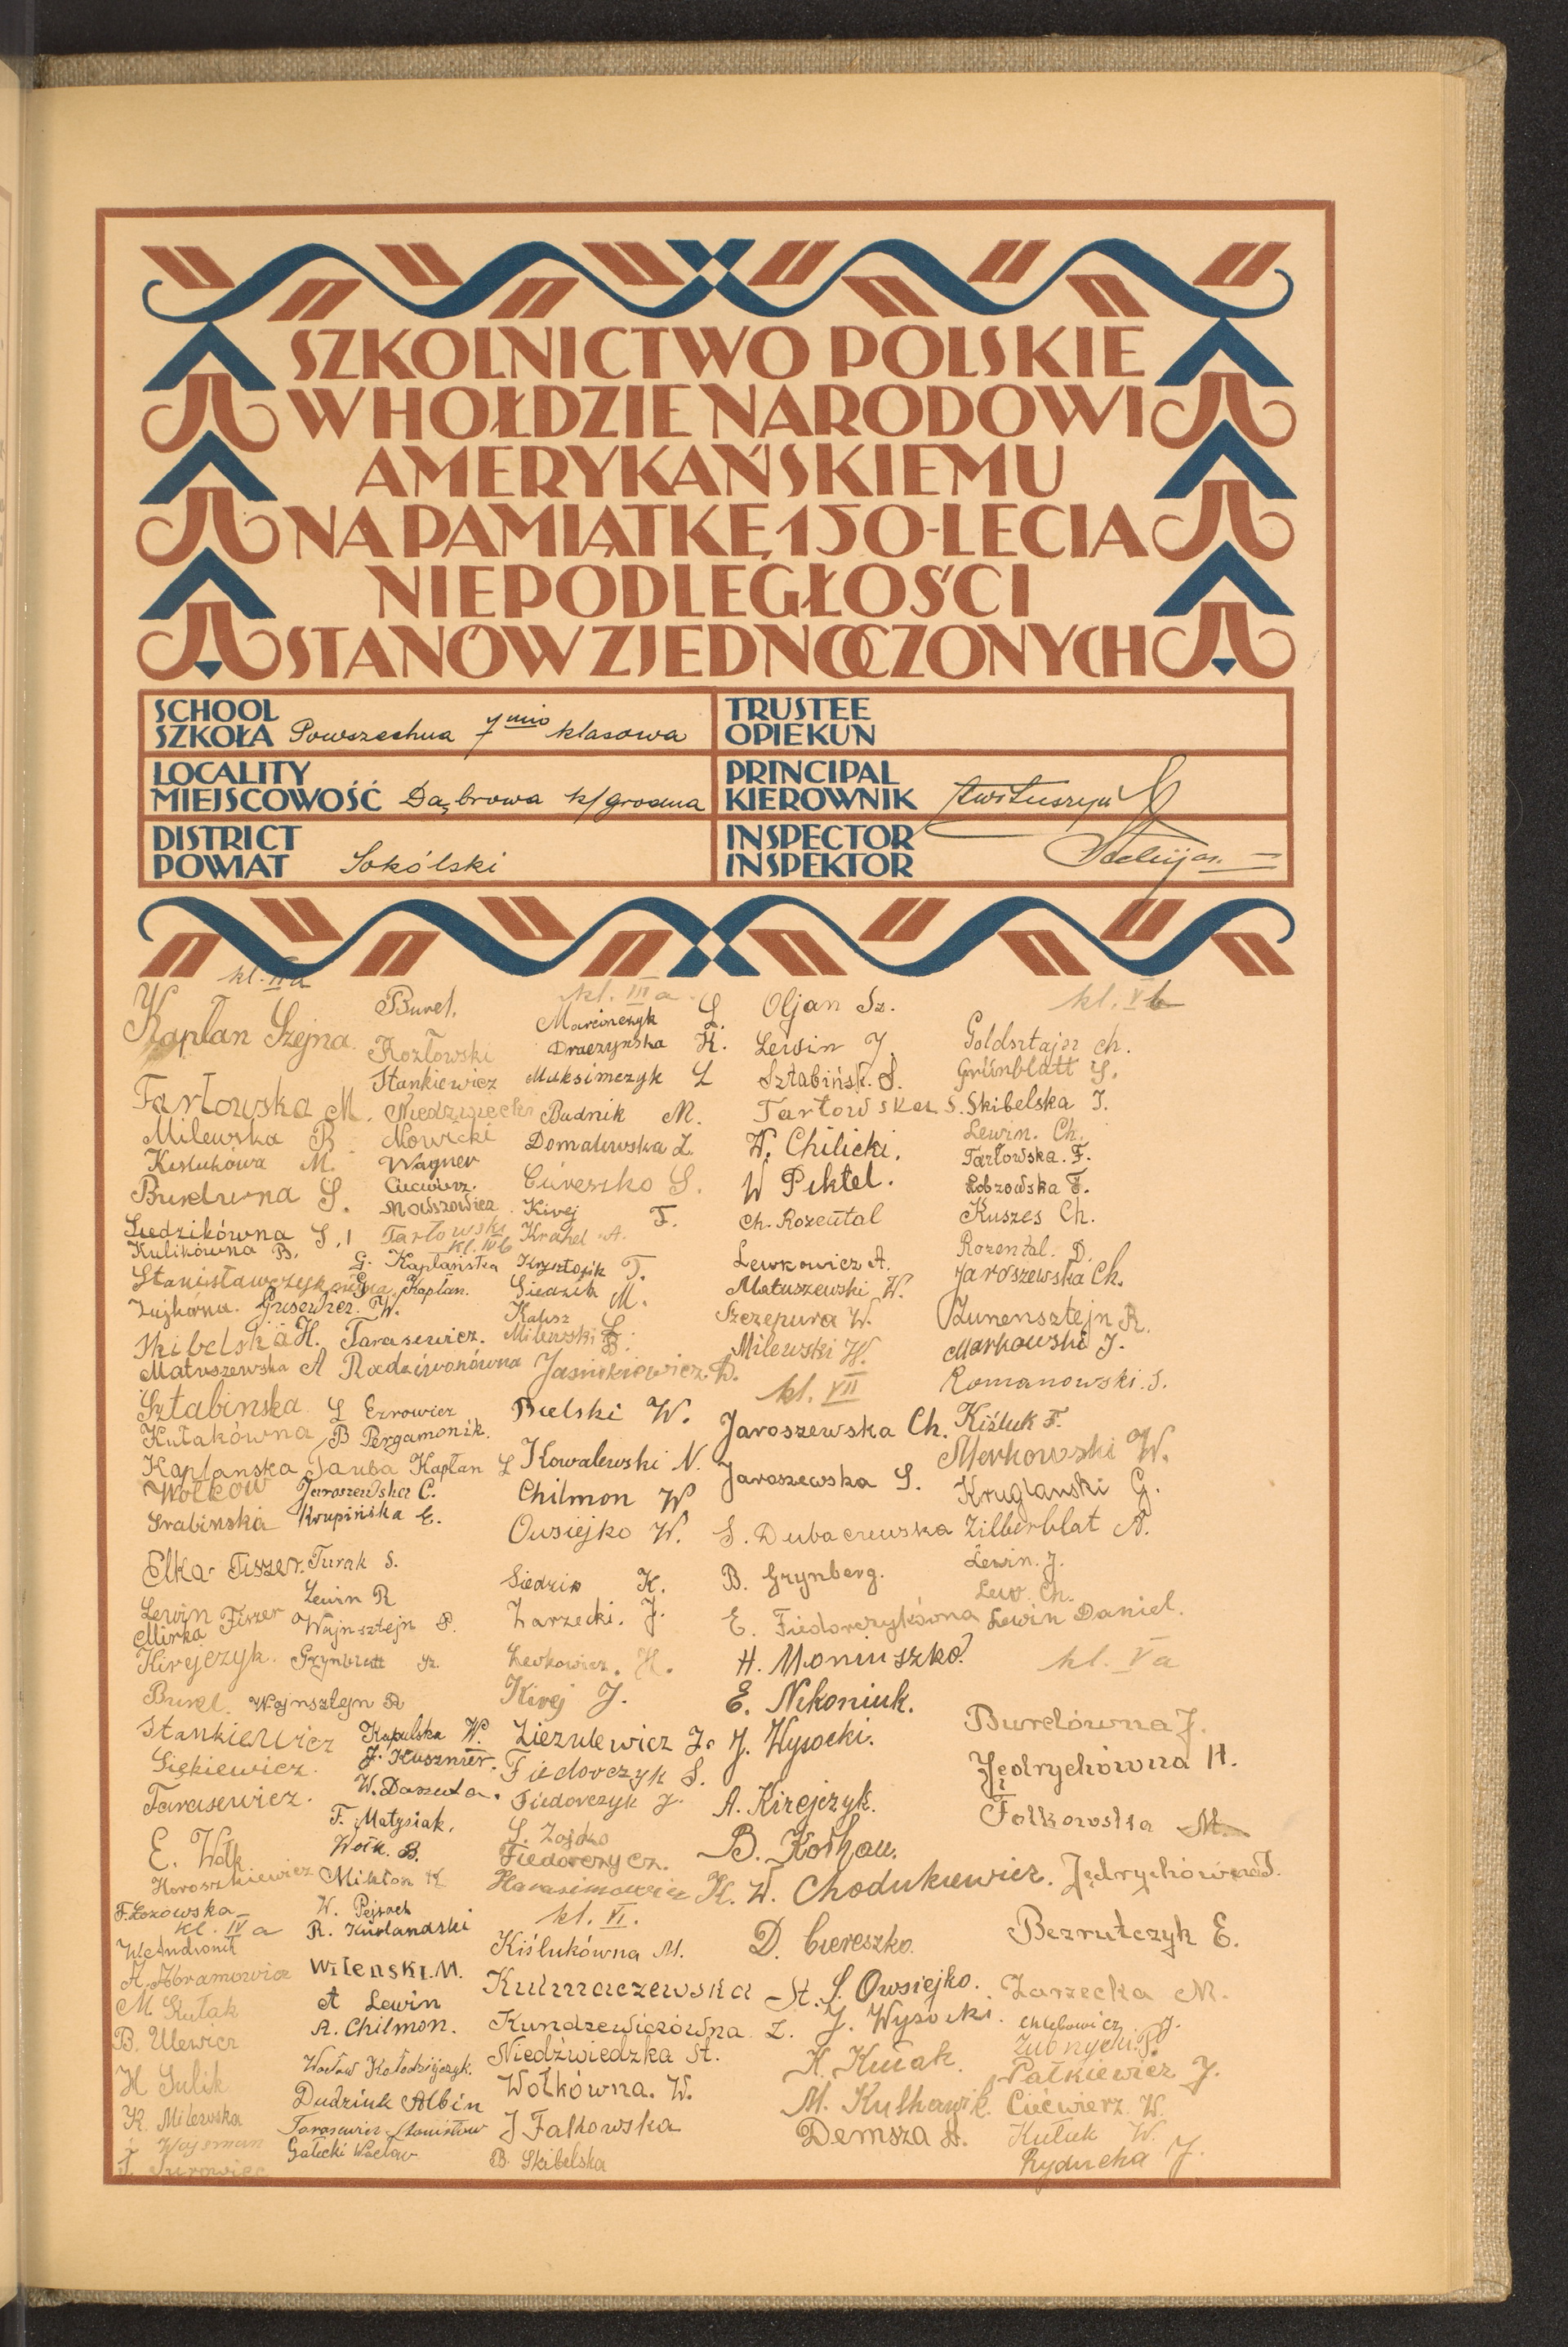 SZKOLNICTWO POLSKIE
W HOŁDZIE NARODOWI
AMERYKAŃSKIEMU
NA PAMIĄTKĘ 150-LECIA
NIEPODLEGŁOŚCI
STANÓW ZJEDNOCZONYCH
SCHOOL
SZKOŁA Powszechna 7mio klasowa
TRUSTEE
OPIEKUN
LOCALITY
MIEJSCOWOŚĆ Dąbrowa k/Grodna
PRINCIPAL
KIEROWNIK
DISTRICT
POWIAT Sokólski
INSPECTOR
INSPEKTOR
kl. II a
Kaplan Szejna
Tarłowska M.
Milewska B
Kislukówna M.
Burelwna S.
Siedzikówna S.
Kulikówna B.
Stanisławczyk
Zujkówna.
Skibelska H.
Matuszewska A
Sztabinska L
Kułakówna B
Kaplanska Tauba
Wołkow
Grabinska
Elka Fiszer.
Lewin
Mirka Fiszer
Kirejczyk.
Burel.
Stankiewicz
Giekiewicz.
Tarasewicz.
E. Wołk
Horoszkiewicz
F. Łozowska
kl. IV a
W. Andronik
A. Abramowicz
M. Kułak
B. Ulewicz
H Sulik
K. Milewska
Wajsman
T. Turowiec
Burel.
Kozłowski
Stankiewicz
Niedzwiecki
Nowicki
Wagner
Ciecwierz.
Mowszowicz
Tarłowski
kl. IV b
G. Kaplańska
G. Kaplan.
Gusewicz. W.
Tarasewicz.
Radziwonówna
Ezrowicz
Pergamonik.
Kapłan L
Jaroszewska C.
Krupińska E.
Turak S.
Lewin R
Wajnsztejn P.
Grynblatt Sz.
Wajnsztejn R
Kapulska W.
J. Kuszmer.
W. Daszuta.
F. Matysiak.
Wołk. B.
Mikłon K
W. Pejsach
R. Kurlandski
Wilenski. M.
A Lewin
A. Chilmon.
Wacław Kołodziejczyk.
Dudziuk Albin
Tarasewicz Stanisław
Gałecki Wacław
kl. III a.
Marcinczyk L.
Draczynska K.
Maksimczyk L
Budnik M.
Domalewska L.
Ciereszko S.
Kirej F.
Krahel A.
Krysztofik T.
Siedzik M.
Kałusz L.
Milewski B.
Jasinkiewicz. D.
Bielski W.
Kowalewski N.
Chilmon W
Owsiejko W.
Siedzik K.
Zarzecki. J.
Lewkowicz. H.
Kirej J.
Ziezulewicz J.
Fiedorczyk S.
Fiedorczyk J.
S. Zojdo
Fiedorczycz.
Harasimowicz K.
kl. VI.
Kiślukówna M.
Kulmaczewska St.
Kundzewiczówna L.
Niedźwiedzka St.
Wołkówna. W.
J Falkowska
B. Skibelska
Oljan Sz.
Lewin J.
Sztabińsk. S.
Tarłowska S.
W. Chilicki.
W Piktel.
Ch. Rozental
Lewkowicz A.
Matuszewski W.
Szczepura W.
Milewski W.
kl. VII
Jaroszewska Ch.
Jaroszewska S.
S. Dubaczewska
B. Grynberg.
E. Fiedorczykówna
H. Moniuszko.
E. Nikoniuk.
J. Wysocki.
A. Kirejczyk.
B. Kothau.
W. Chodukiewicz.
D. Ciereszko.
S. Owsiejko.
J. Wysocki.
K. Kułak.
M. Kulhawik.
Demsza A.
kl. V b
Goldsztajn Ch.
Grünblatt S.
Skibelska I.
Lewin. Ch.
Tarłowska. F.
Łobzowska F.
Kuszes Ch.
Rozental. D.
Jaroszewska Ch.
Zunensztejn R.
Markowski J.
Romanowski. S.
Kiśluk F.
Merkowski W.
Kruglanski G.
Zilberblat A.
Lewin. J.
Lew. Ch.
Lewin Daniel.
kl. V a
Burelówna J.
Jędrychówna H.
Falkowska M.
Jędrychówna J.
Bezrutczyk E.
Zarzecka M.
Chlebowicz J.
Zubrycki P.
Pałkiewicz J.
Ciećwierz W.
Kułak W.
Ryducha J.